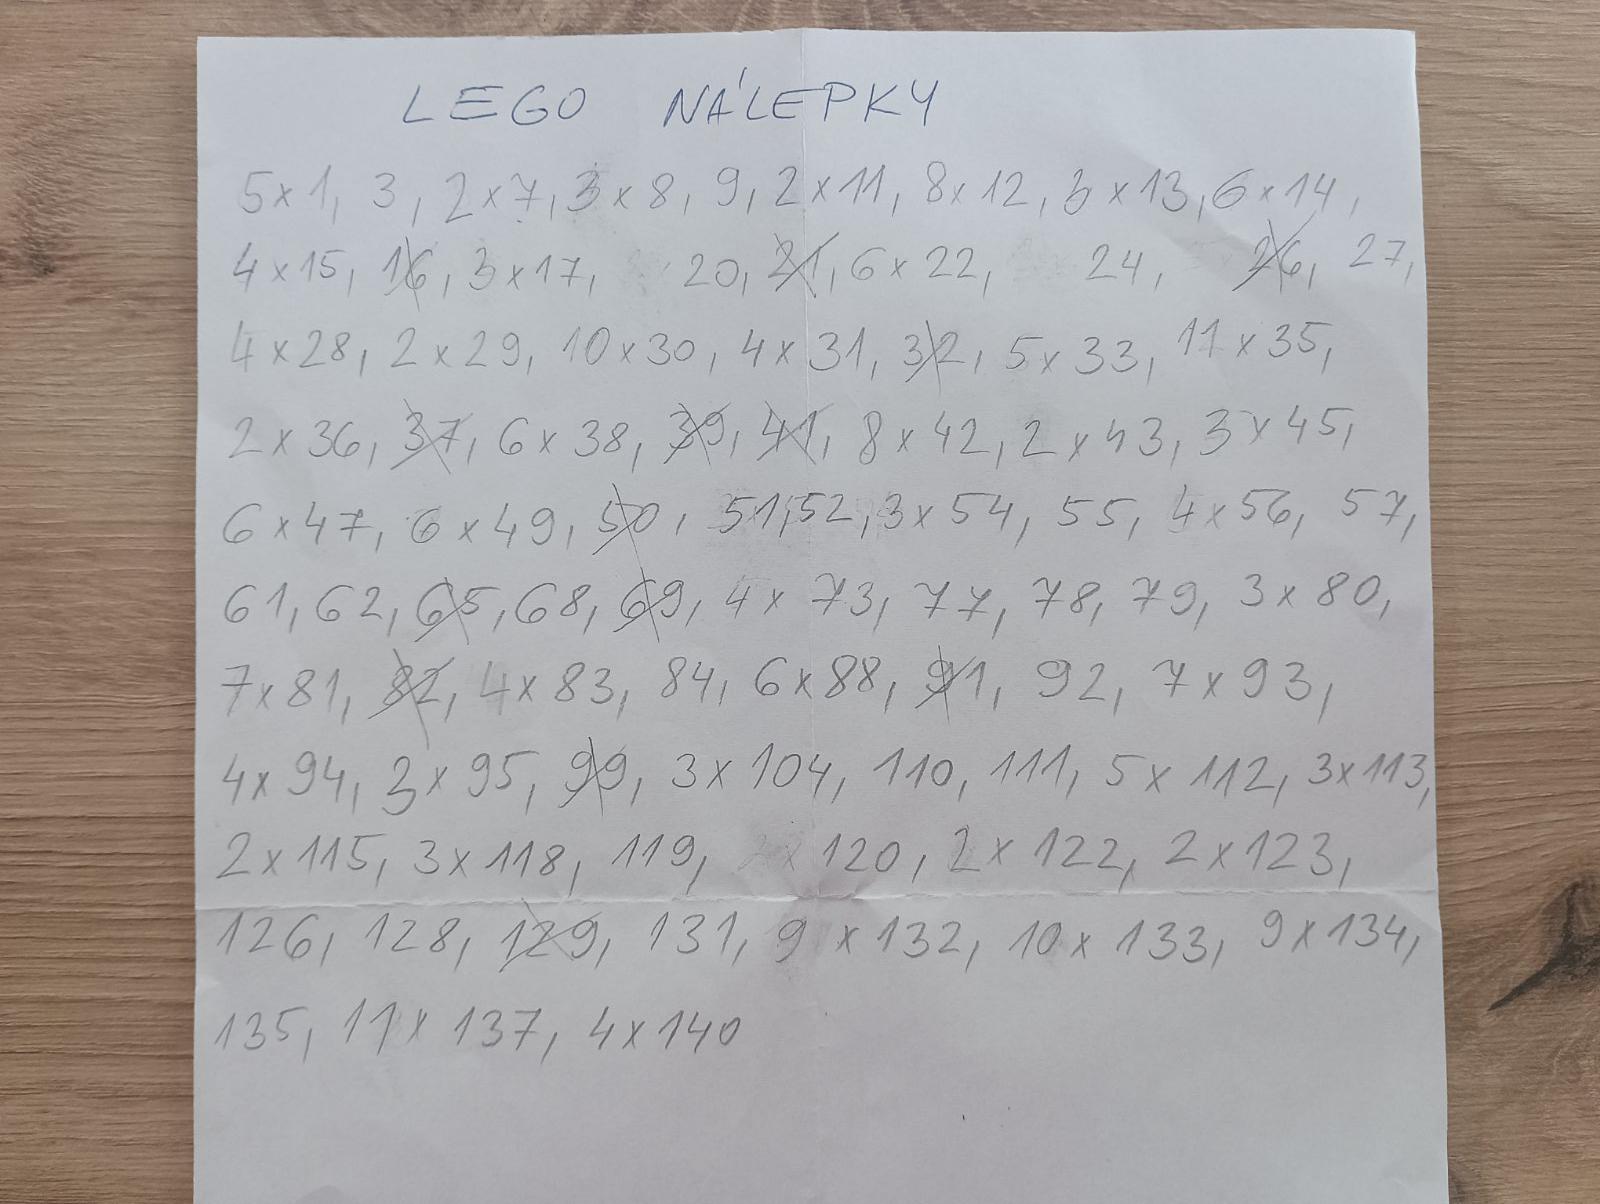 LEGO NÁLEPKY
5x1, 3, 2x7, 3x8, 9, 2x11, 8x12, 3x13, 6x14,
4x15, 16, 3x17, 20, 21, 6x22, 24, 26, 27,
4x28, 2x29, 10x30, 4x31, 32, 5x33, 11x35,
2x36, 37, 6x38, 39, 41, 8x42, 2x43, 3x45,
6x47, 6x49, 50, 51, 52, 3x54, 55, 4x56, 57,
61, 62, 65, 68, 69, 4x73, 77, 78, 79, 3x80,
7x81, 82, 4x83, 84, 6x88, 91, 92, 7x93,
4x94, 3x95, 99, 3x104, 110, 111, 5x112, 3x113,
2x115, 3x118, 119, 120, 2x122, 2x123,
126, 128, 129, 131, 9x132, 10x133, 9x134,
135, 11x137, 4x140